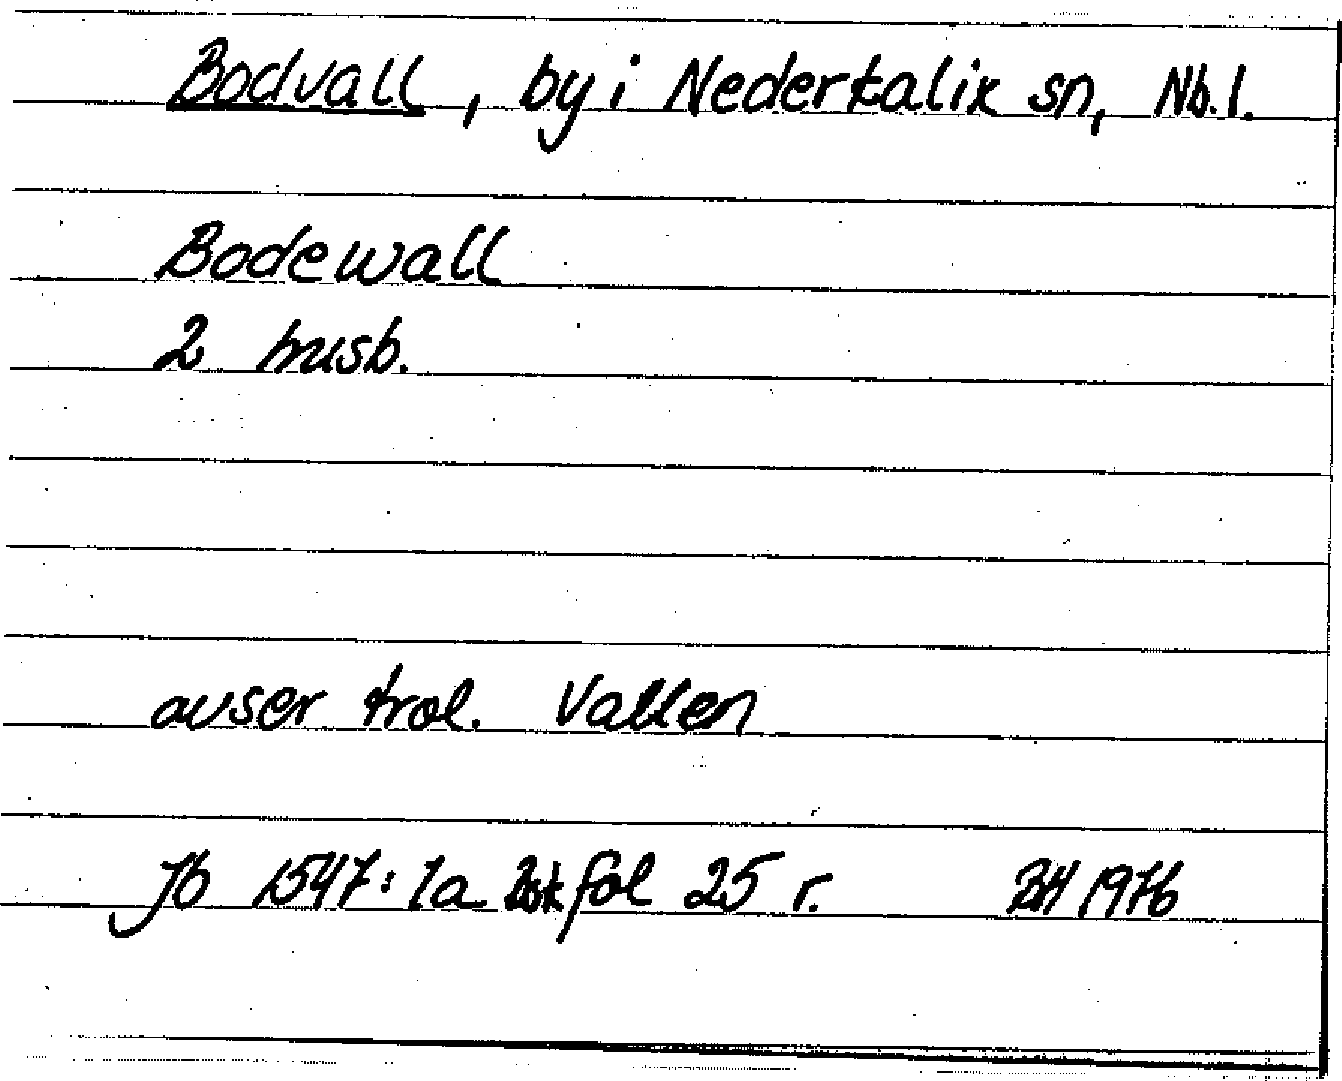 Bodvall, by i Nederkalix sn, Nb. l.
Bodewall
2 husb.
avser trol. Vallen
Jb 1547: 1a fol 25 r. BH 1976